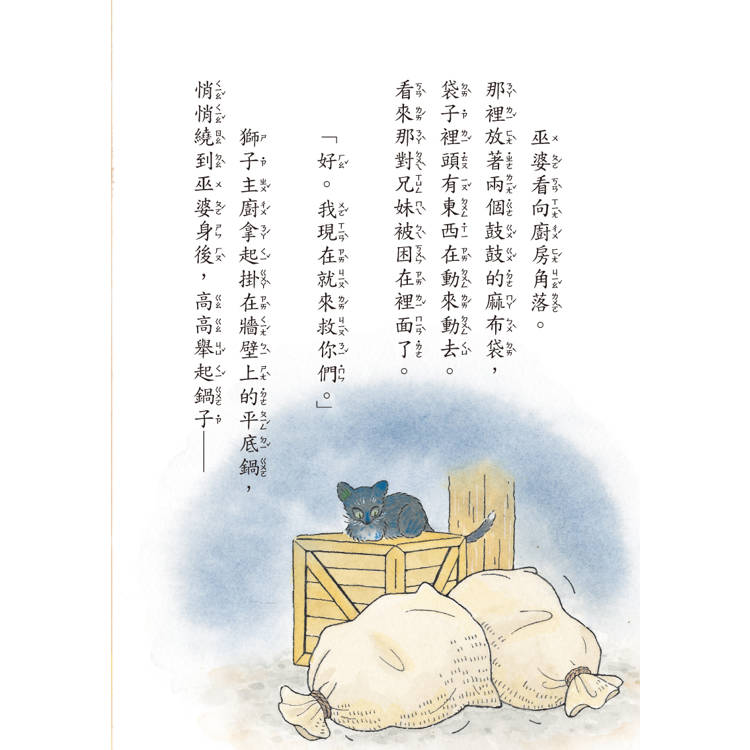 巫婆看向廚房角落。
那裡放著兩個鼓鼓的麻布袋，
袋子裡頭有東西在動來動去。
看來那對兄妹被困在裡面了。
「好。我現在就來救你們。」
獅子主廚拿起掛在牆壁上的平底鍋，
悄悄繞到巫婆身後，高高舉起鍋子——